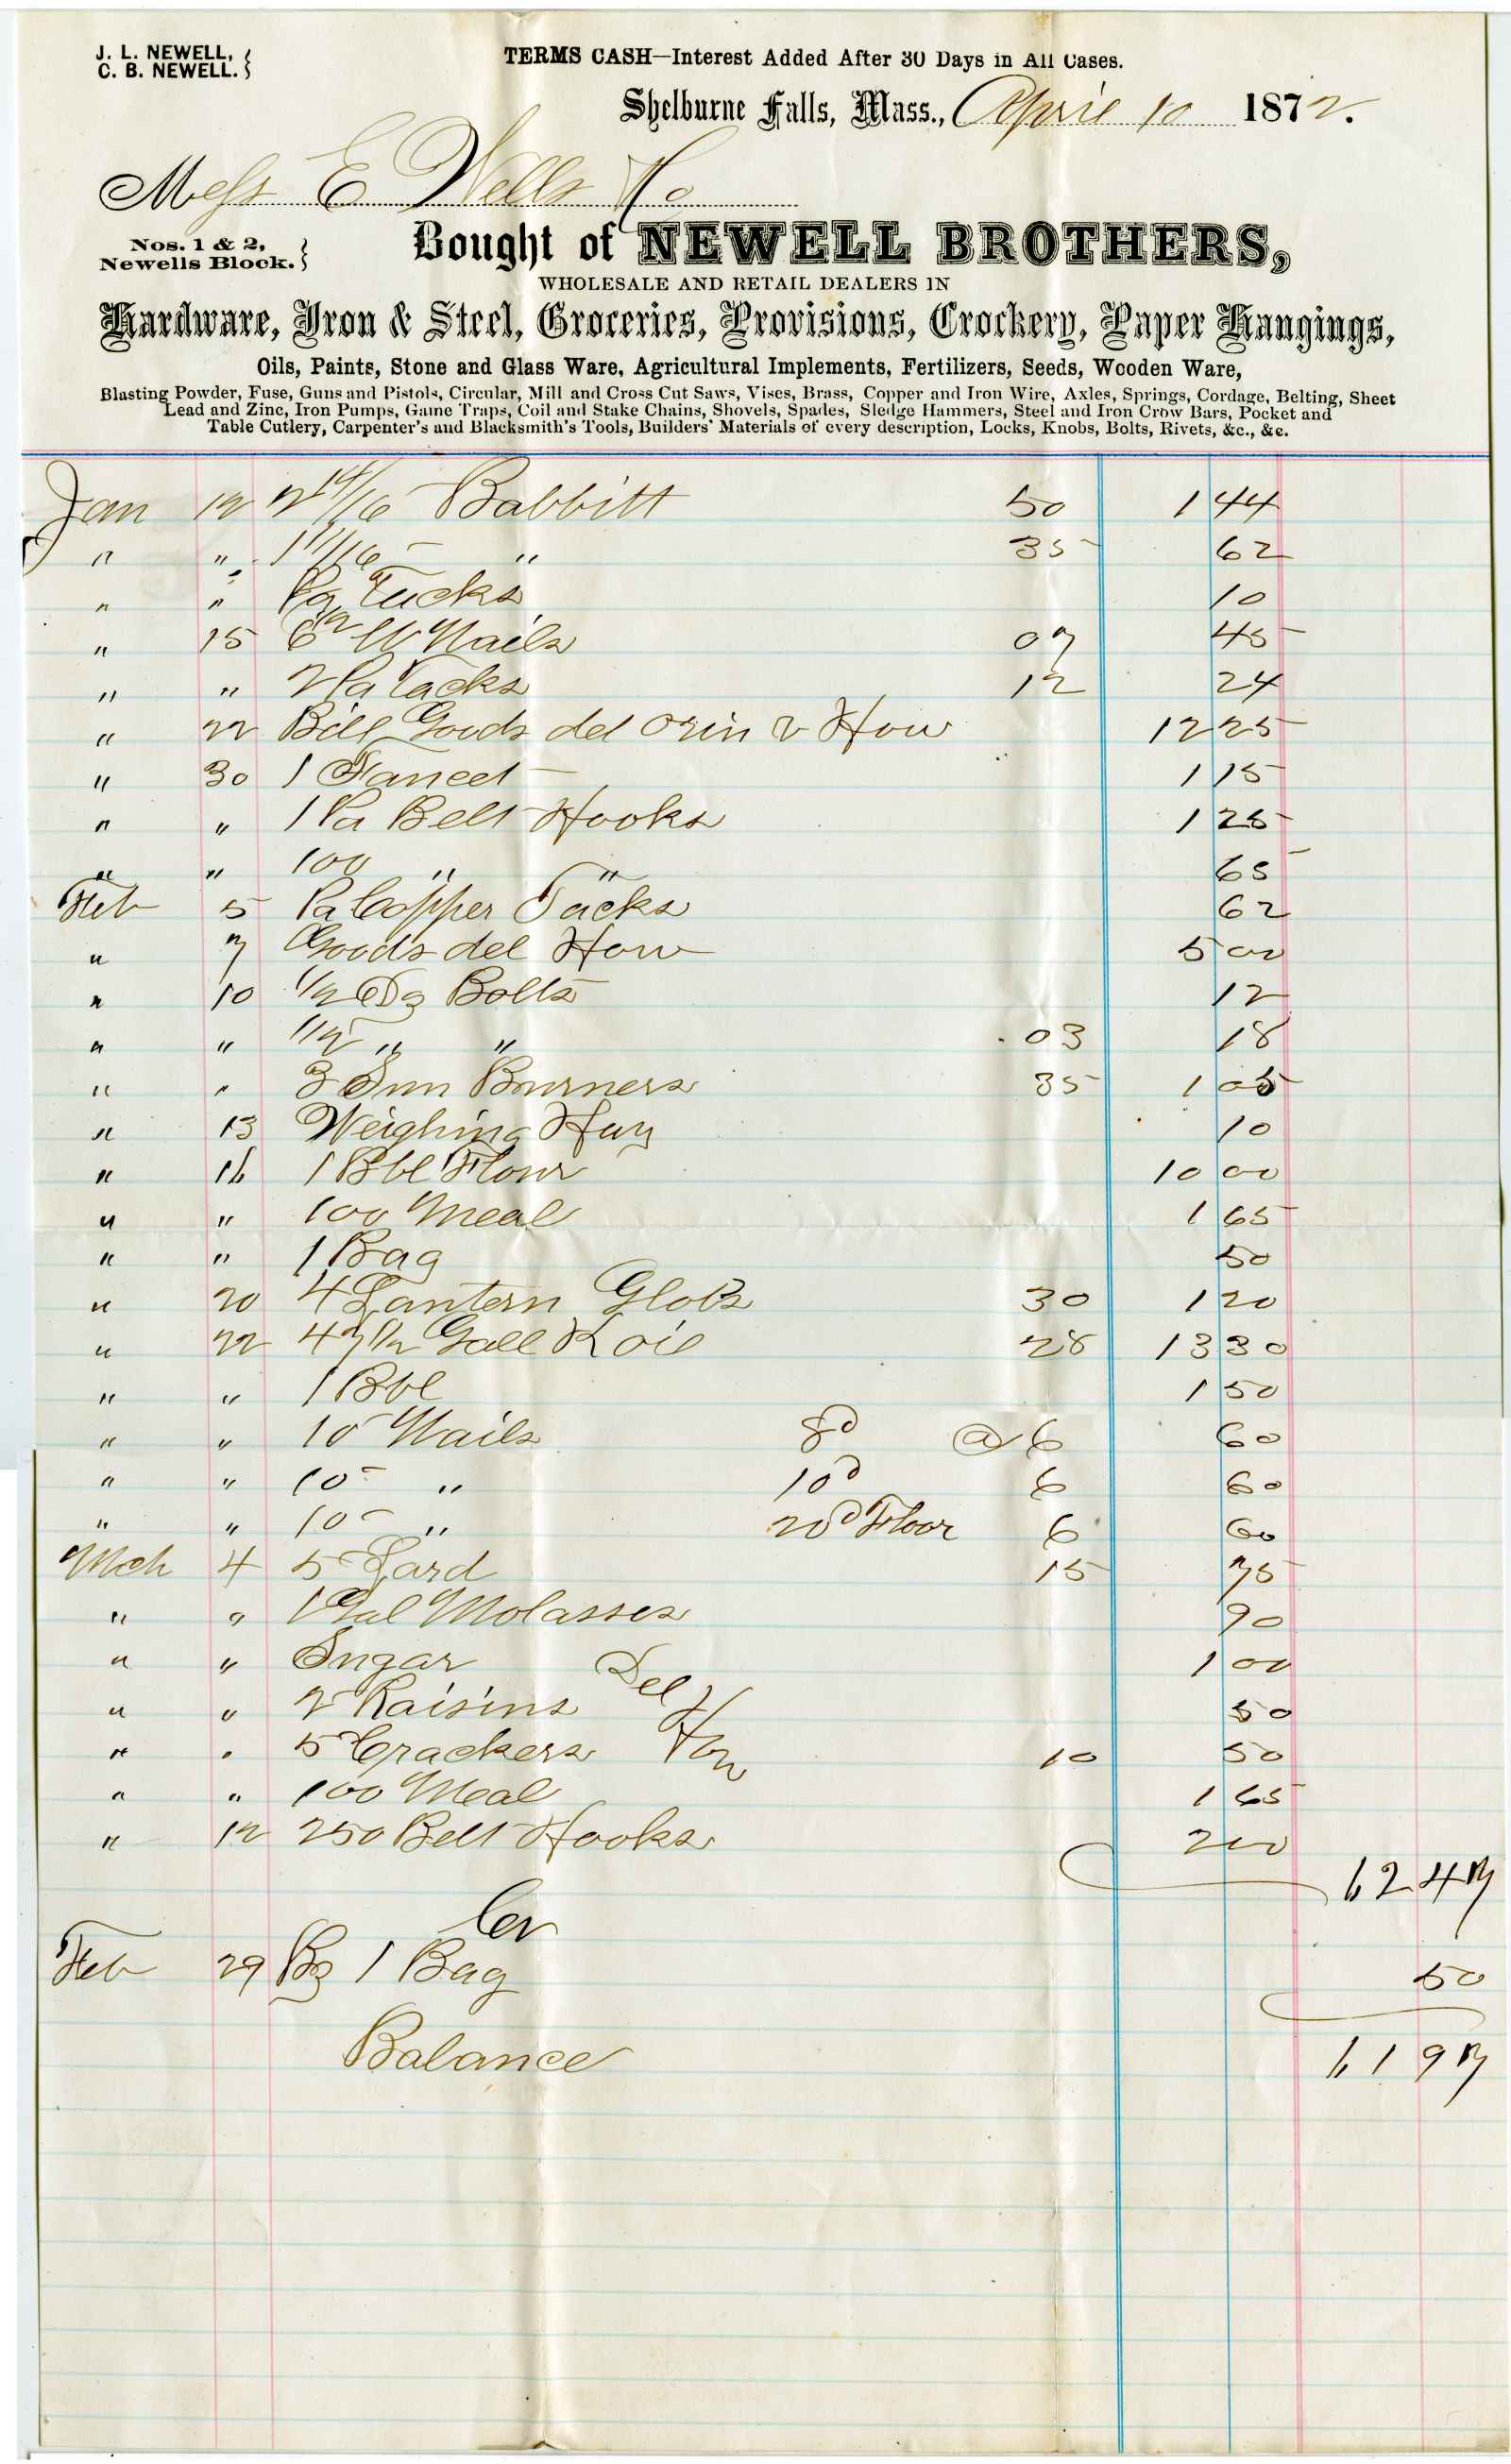 J. L. NEWELL,
C. B. NEWELL.
TERMS CASH—Interest Added After 30 Days in All Cases.
Shelburne Falls, Mass., April 10 1872.
Mess E Wells & Co
Nos. 1 & 2,
Newells Block.
Bought of NEWELL BROTHERS,
WHOLESALE AND RETAIL DEALERS IN
Hardware, Iron & Steel, Groceries, Provisions, Crockery, Paper Hangings,
Oils, Paints, Stone and Glass Ware, Agricultural Implements, Fertilizers, Seeds, Wooden Ware,
Blasting Powder, Fuse, Guns and Pistols, Circular, Mill and Cross Cut Saws, Vises, Brass, Copper and Iron Wire, Axles, Springs, Cordage, Belting, Sheet
Lead and Zinc, Iron Pumps, Game Traps, Coil and Stake Chains, Shovels, Spades, Sledge Hammers, Steel and Iron Crow Bars, Pocket and
Table Cutlery, Carpenter's and Blacksmith's Tools, Builders' Materials of every description, Locks, Knobs, Bolts, Rivets, &c., &c.
Jan 12 2 14/16 Babbitt 50 1 44
" " 1 11/16 " 35 62
" " Pa Tacks 10
" 15 Nails 07 45
" " 2 Pa Tacks 12 24
" 22 Bill Goods del Orin & How 12 25
" 30 1 Faucet 1 15
" " 1 Pa Belt Hooks 1 25
" " 100 " " 65
Feb 5 Pa Copper Tacks 62
" 7 Goods del How 5 00
" 10 1/2 Dz Bolts 12
" " 1/2 " " 03 18
" " 3 Sun Burners 35 1 05
" 13 Weighing Hay 10
" 16 1 Bbl Flour 10 00
" " 100 Meal 1 65
" " 1 Bag 50
" 20 4 Lantern Globs 30 1 20
" 22 47 1/2 Gall K oil 28 13 30
" " 1 Bbl 1 50
" " 10 Nails 8d @ 6 60
" " 10 " 10d 6 60
" " 10 " 20d Floor 6 60
Mch 4 5 Lard 15 75
" " 1 Gal Molasses 90
" " Sugar Del 1 00
" " 2 Raisins 50
" " 5 Crackers How 10 50
" " 100 Meal 1 65
" 12 250 Belt Hooks 2 00
62 47
Cr
Feb 29 By 1 Bag 50
Balance 61 97